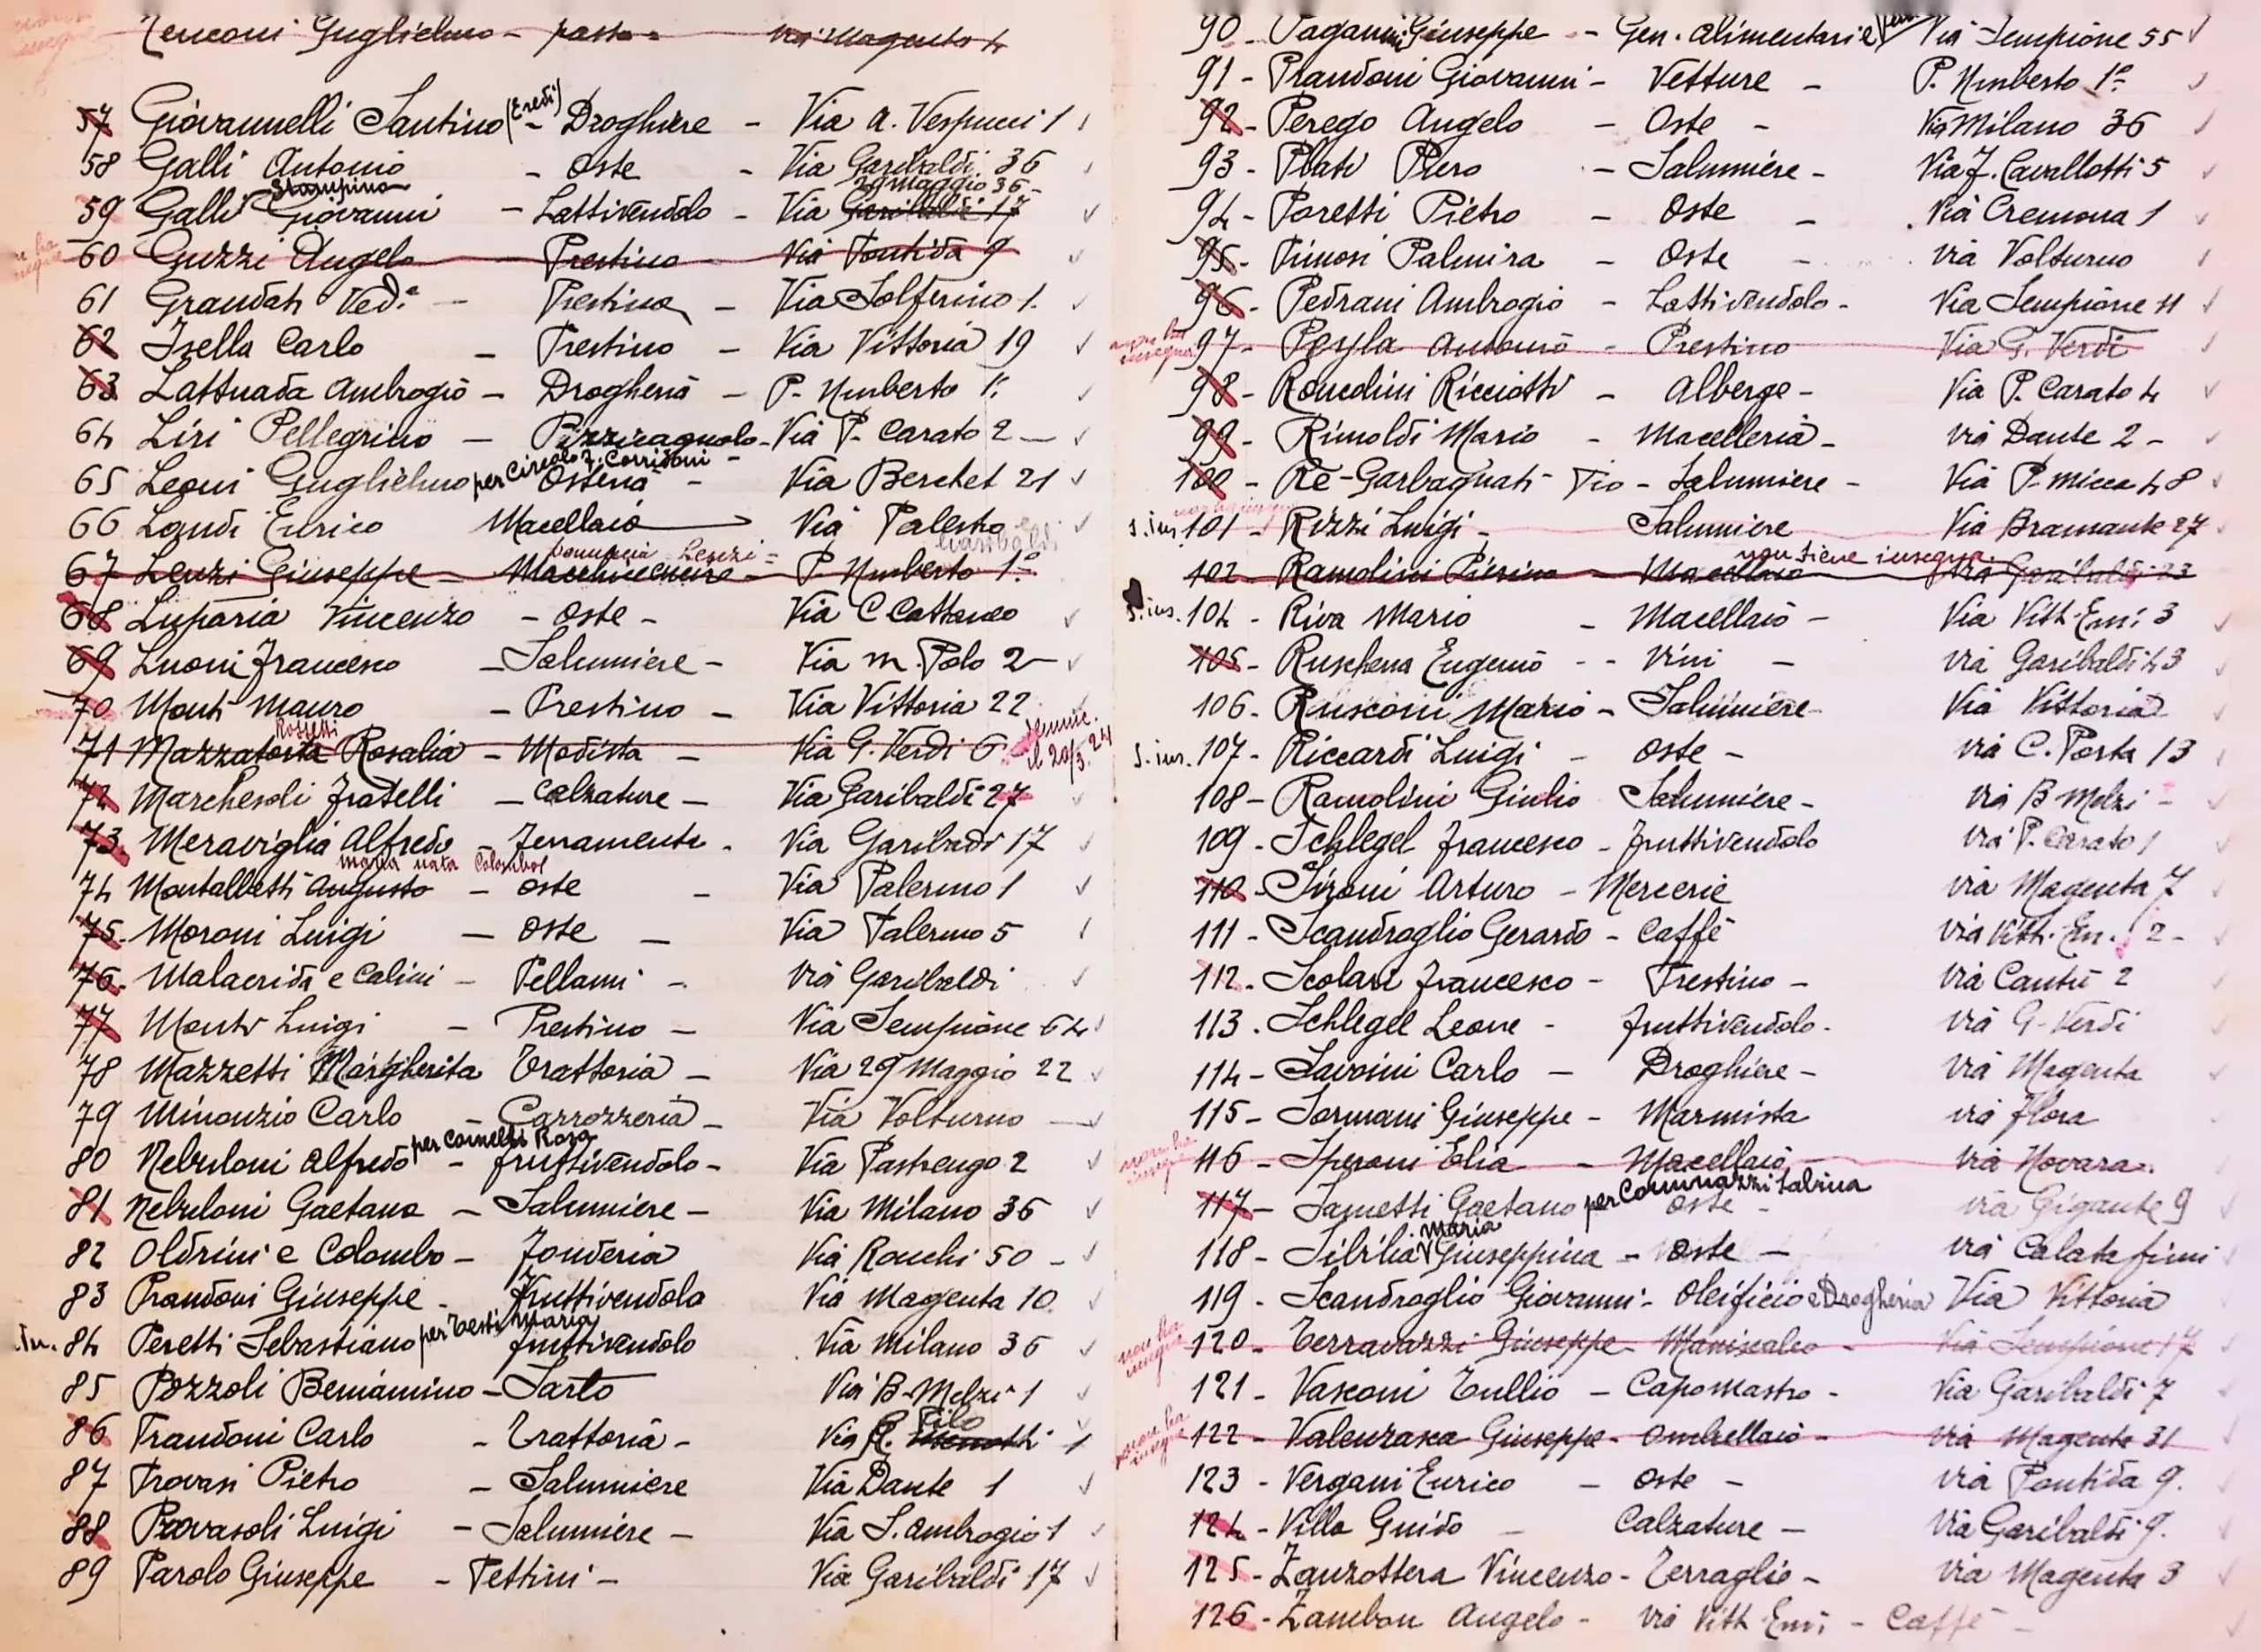 Cenconi Guglielmo - pasta - via Magenta 4
57 Giovannelli Santino (Eredi) - Droghiere - Via A. Vespucci 1
58 Galli Antonio - Oste - Via Garibaldi 36
Stampino 29 Maggio 36 -
59 Galli Giovanni - Lattivendolo - Via Garibaldi 17
60 Guzzi Angelo - Prestino - Via Pontida 9
61 Grandati Ved.a - Prestino - Via Solferino 1.
62 Isella Carlo - Prestino - Via Vittoria 19
63 Lattuada Ambrogio - Drogheria - P. Umberto 1:
64 Liri Pellegrino - Pizzicagnolo - Via P. Carato 2 -
65 Leoni Guglielmo per Circolo F. Corridoni - Osteria - Via Berchet 21
66 Landi Enrico Macellaio Via Palestro
Garibaldi
67 Lenzi Giuseppe - - P. Umberto 1°
68 Luparia Vincenzo - Oste - Via C Cattaneo
69 Luoni Francesco - Salumiere - Via M. Polo 2 -
70 Monti Mauro - Prestino - Via Vittoria 22
Rossetti
71 Mazzatorta Rosalia - Modista - Via G. Verdi 6
il 20/3.24
72 Marchesoli Fratelli - Calzature - Via Garibaldi 27
73. Meraviglia Alfredo - Ferramenta - Via Garibaldi 17
Maria nata Colombo
74 Montalbetti Augusto - Oste - Via Palermo 1
75 - Moroni Luigi - Oste - Via Palermo 5
76 - Malacrida e Calini - Pellami - Via Garibaldi
77 Monti Luigi - Prestino - Via Sempione 64
78 Mazzetti Margherita Trattoria - Via 29 Maggio 22
79 Minonzio Carlo - Carrozzeria - Via Volturno
80 Nebuloni Alfredo per Cometti Rosa - fruttivendolo - Via Pastrengo 2
81 Nebuloni Gaetano - Salumiere - Via Milano 36
82 Oldrini e Colombo - Fonderia Via Ronchi 50 -
83 Prandoni Giuseppe - Fruttivendolo Via Magenta 10
84 Peretti Sebastiano per Testi Maria fruttivendolo Via Milano 36
85 Pozzoli Beniamino - Sarto Via B. Melzi 1
86 Prandoni Carlo - Trattoria - Via R. Pilo
87 Provasi Pietro - Salumiere Via Dante 1
88 Provasoli Luigi - Salumiere - Via S. Ambrogio 1
89 Parolo Giuseppe - Pettini - Via Garibaldi 17
90 - Paganini Giuseppe - Gen. Alimentari e Via Sempione 55
91 - Prandoni Giovanni - Vetture - P. Umberto 1°
92 - Perego Angelo - Oste - Via Milano 36
93 - Plati Piero - Salumiere - Via F. Cavallotti 5
94 - Poretti Pietro - Oste - Via Cremona 1
95 - Pimosi Palmira - Oste - Via Volturno
96 - Pedrani Ambrogio - Lattivendolo - Via Sempione 11
non ha insegna 97 - Peyla Antonio - Prestino Via G. Verdi
98 - Roncolini Ricciotti - Albergo - Via P. Carato 4
99 - Rimoldi Mario - Macelleria - Via Dante 2 -
100 - Re-Garbagnati Pio - Salumiere - Via P. Micca 48
s. ins. 101 - Rizzi Luigi - Salumiere Via Bramante 27
non tiene insegna.
102 - Ramolini Pierino - Macellaio Via Garibaldi 23
s. ins. 104 - Riva Mario - Macellaio - Via Vitt. Em: 3
105 - Ruschena Eugenio - - Vini - Via Garibaldi 43
106 - Rusconi Mario - Salumiere Via Vittoria
s. ins. 107 - Riccardi Luigi - Oste - Via C. Porta 13
108 - Ramolini Giulio Salumiere - Via B Melzi -
109 - Schlegel Francesco - Fruttivendolo Via P. Carato 1
110 - Sironi Arturo - Mercerie Via Magenta 7
111 - Scandroglio Gerardo - Caffè Via Vitt. Em. 2 -
112 - Scolari Francesco - Prestino - Via Cantù 2
113 - Schlegel Leone - fruttivendolo - Via G. Verdi
114 - Savoini Carlo - Droghiere - Via Magenta
115 - Sormani Giuseppe - Marmista Via Flora
non ha insegna 116 - Speroni Elia - Macellaio - Via Novara
117 - Sametti Gaetano per Comunazzi Sabina Oste - Via Gigante 9
Maria
118 - Sibilia Giuseppina - Oste - Via Calatafimi
119 - Scandroglio Giovanni - Oleificio e Drogheria Via Vittoria
non ha insegna 120 - Terravazzi Giuseppe - Maniscalco - Via Sempione 17
121 - Vasconi Tullio - Capomastro - Via Garibaldi 7
non ha insegna 122 - Valenzasca Giuseppe - Ombrellaio - Via Magenta 31
123 - Vergani Enrico - Oste - Via Pontida 9.
124 - Villa Guido - Calzature - Via Garibaldi 9.
125 - Zanzottera Vincenzo - Terraglie - Via Magenta 3
126 - Zambon Angelo - Via Vitt Em: - Caffè -